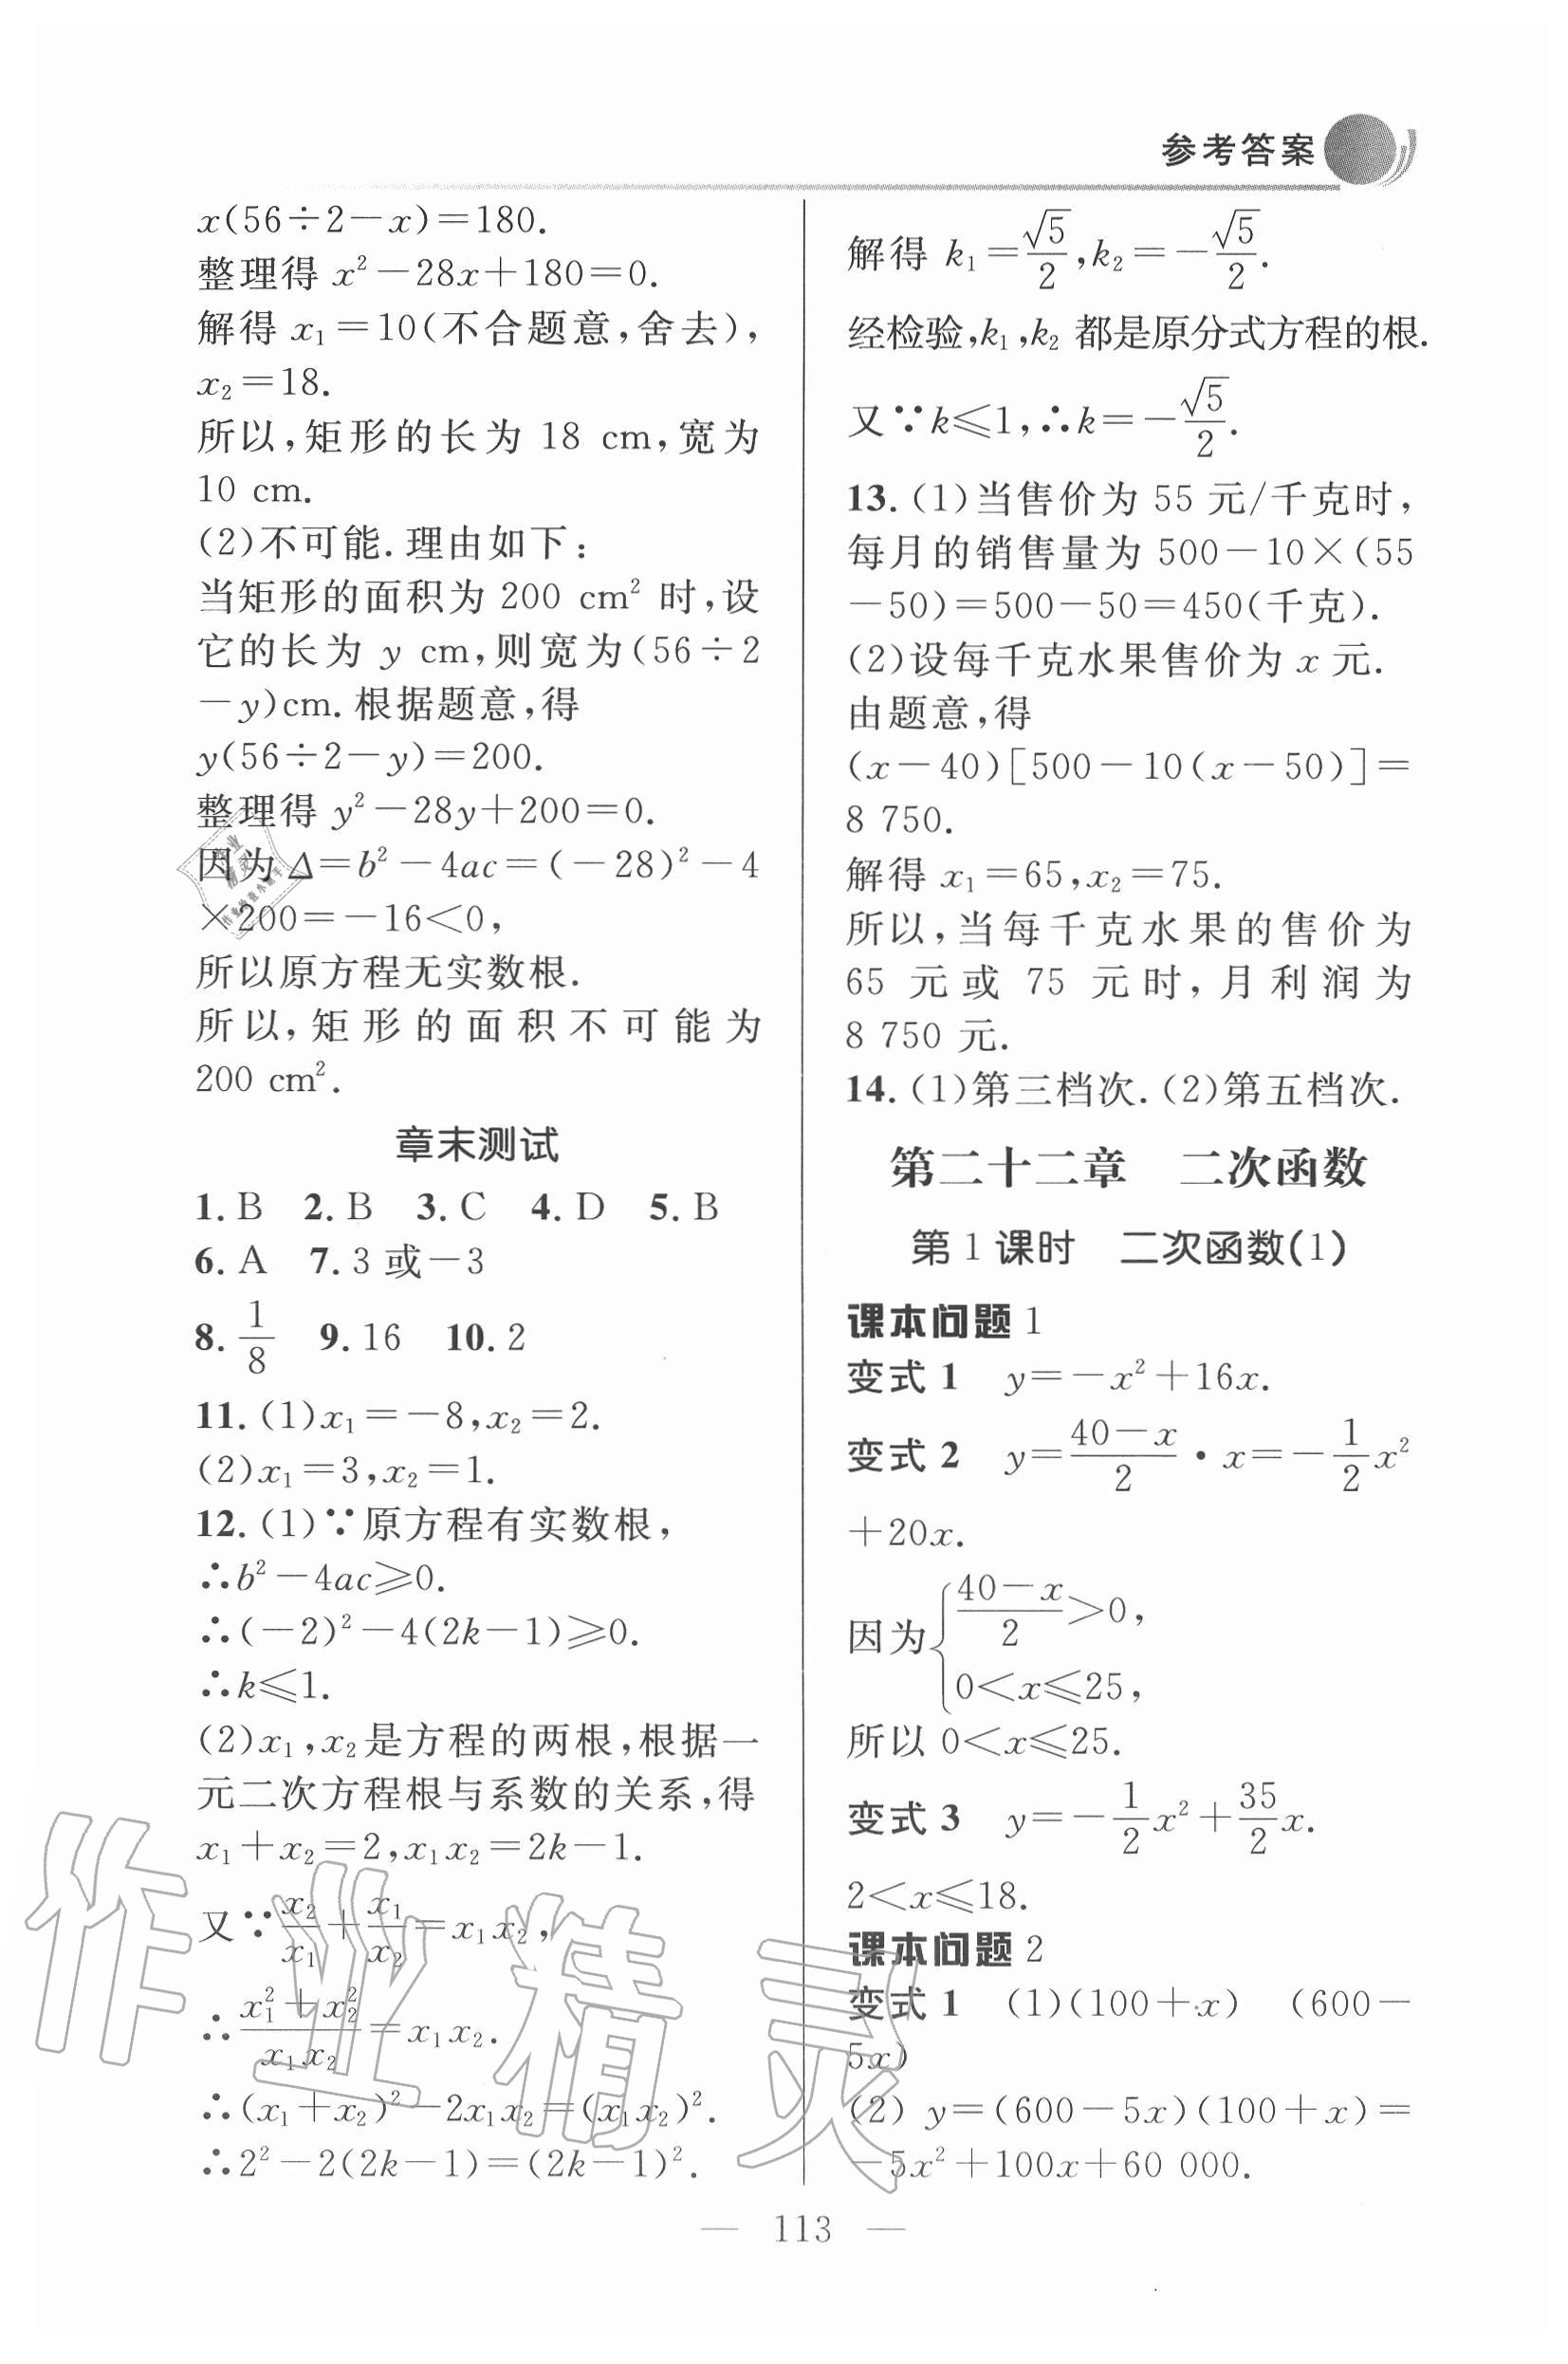 参考答案
x(56÷2－x)＝180.
整理得 x²－28x＋180＝0.
解得 x₁＝10(不合题意,舍去),
x₂＝18.
所以,矩形的长为 18 cm,宽为
10 cm.
(2)不可能.理由如下:
当矩形的面积为 200 cm² 时,设
它的长为 y cm,则宽为(56÷2
－y)cm.根据题意,得
y(56÷2－y)＝200.
整理得 y²－28y＋200＝0.
因为 Δ＝b²－4ac＝(－28)²－4
×200＝－16＜0,
所以原方程无实数根.
所以,矩形的面积不可能为
200 cm².
章末测试
1. B 2. B 3. C 4. D 5. B
6. A 7. 3 或－3
8. 1/8 9. 16 10. 2
11. (1)x₁＝－8,x₂＝2.
(2)x₁＝3,x₂＝1.
12. (1)∵原方程有实数根,
∴b²－4ac≥0.
∴(－2)²－4(2k－1)≥0.
∴k≤1.
(2)x₁,x₂是方程的两根,根据一
元二次方程根与系数的关系,得
x₁＋x₂＝2,x₁x₂＝2k－1.
又∵x₂/x₁＋x₁/x₂＝x₁x₂,
∴(x₁²＋x₂²)/(x₁x₂)＝x₁x₂.
∴(x₁＋x₂)²－2x₁x₂＝(x₁x₂)².
∴2²－2(2k－1)＝(2k－1)².
解得 k₁＝√5/2,k₂＝－√5/2.
经检验,k₁,k₂ 都是原分式方程的根.
又∵k≤1,∴k＝－√5/2.
13. (1)当售价为 55 元/千克时,
每月的销售量为 500－10×(55
－50)＝500－50＝450(千克).
(2)设每千克水果售价为 x 元.
由题意,得
(x－40)[500－10(x－50)]＝
8 750.
解得 x₁＝65,x₂＝75.
所以,当每千克水果的售价为
65 元或 75 元时,月利润为
8 750 元.
14. (1)第三档次. (2)第五档次.
第二十二章 二次函数
第 1 课时 二次函数(1)
课本问题 1
变式 1 y＝－x²＋16x.
变式 2 y＝(40－x)/2 • x＝－1/2 x²
＋20x.
因为{(40－x)/2＞0,
0＜x≤25,
所以 0＜x≤25.
变式 3 y＝－1/2 x²＋35/2 x.
2＜x≤18.
课本问题 2
变式 1 (1)(100＋x) (600－
5x)
(2) y＝(600－5x)(100＋x)＝
－5x²＋100x＋60 000.
— 113 —
作业精灵